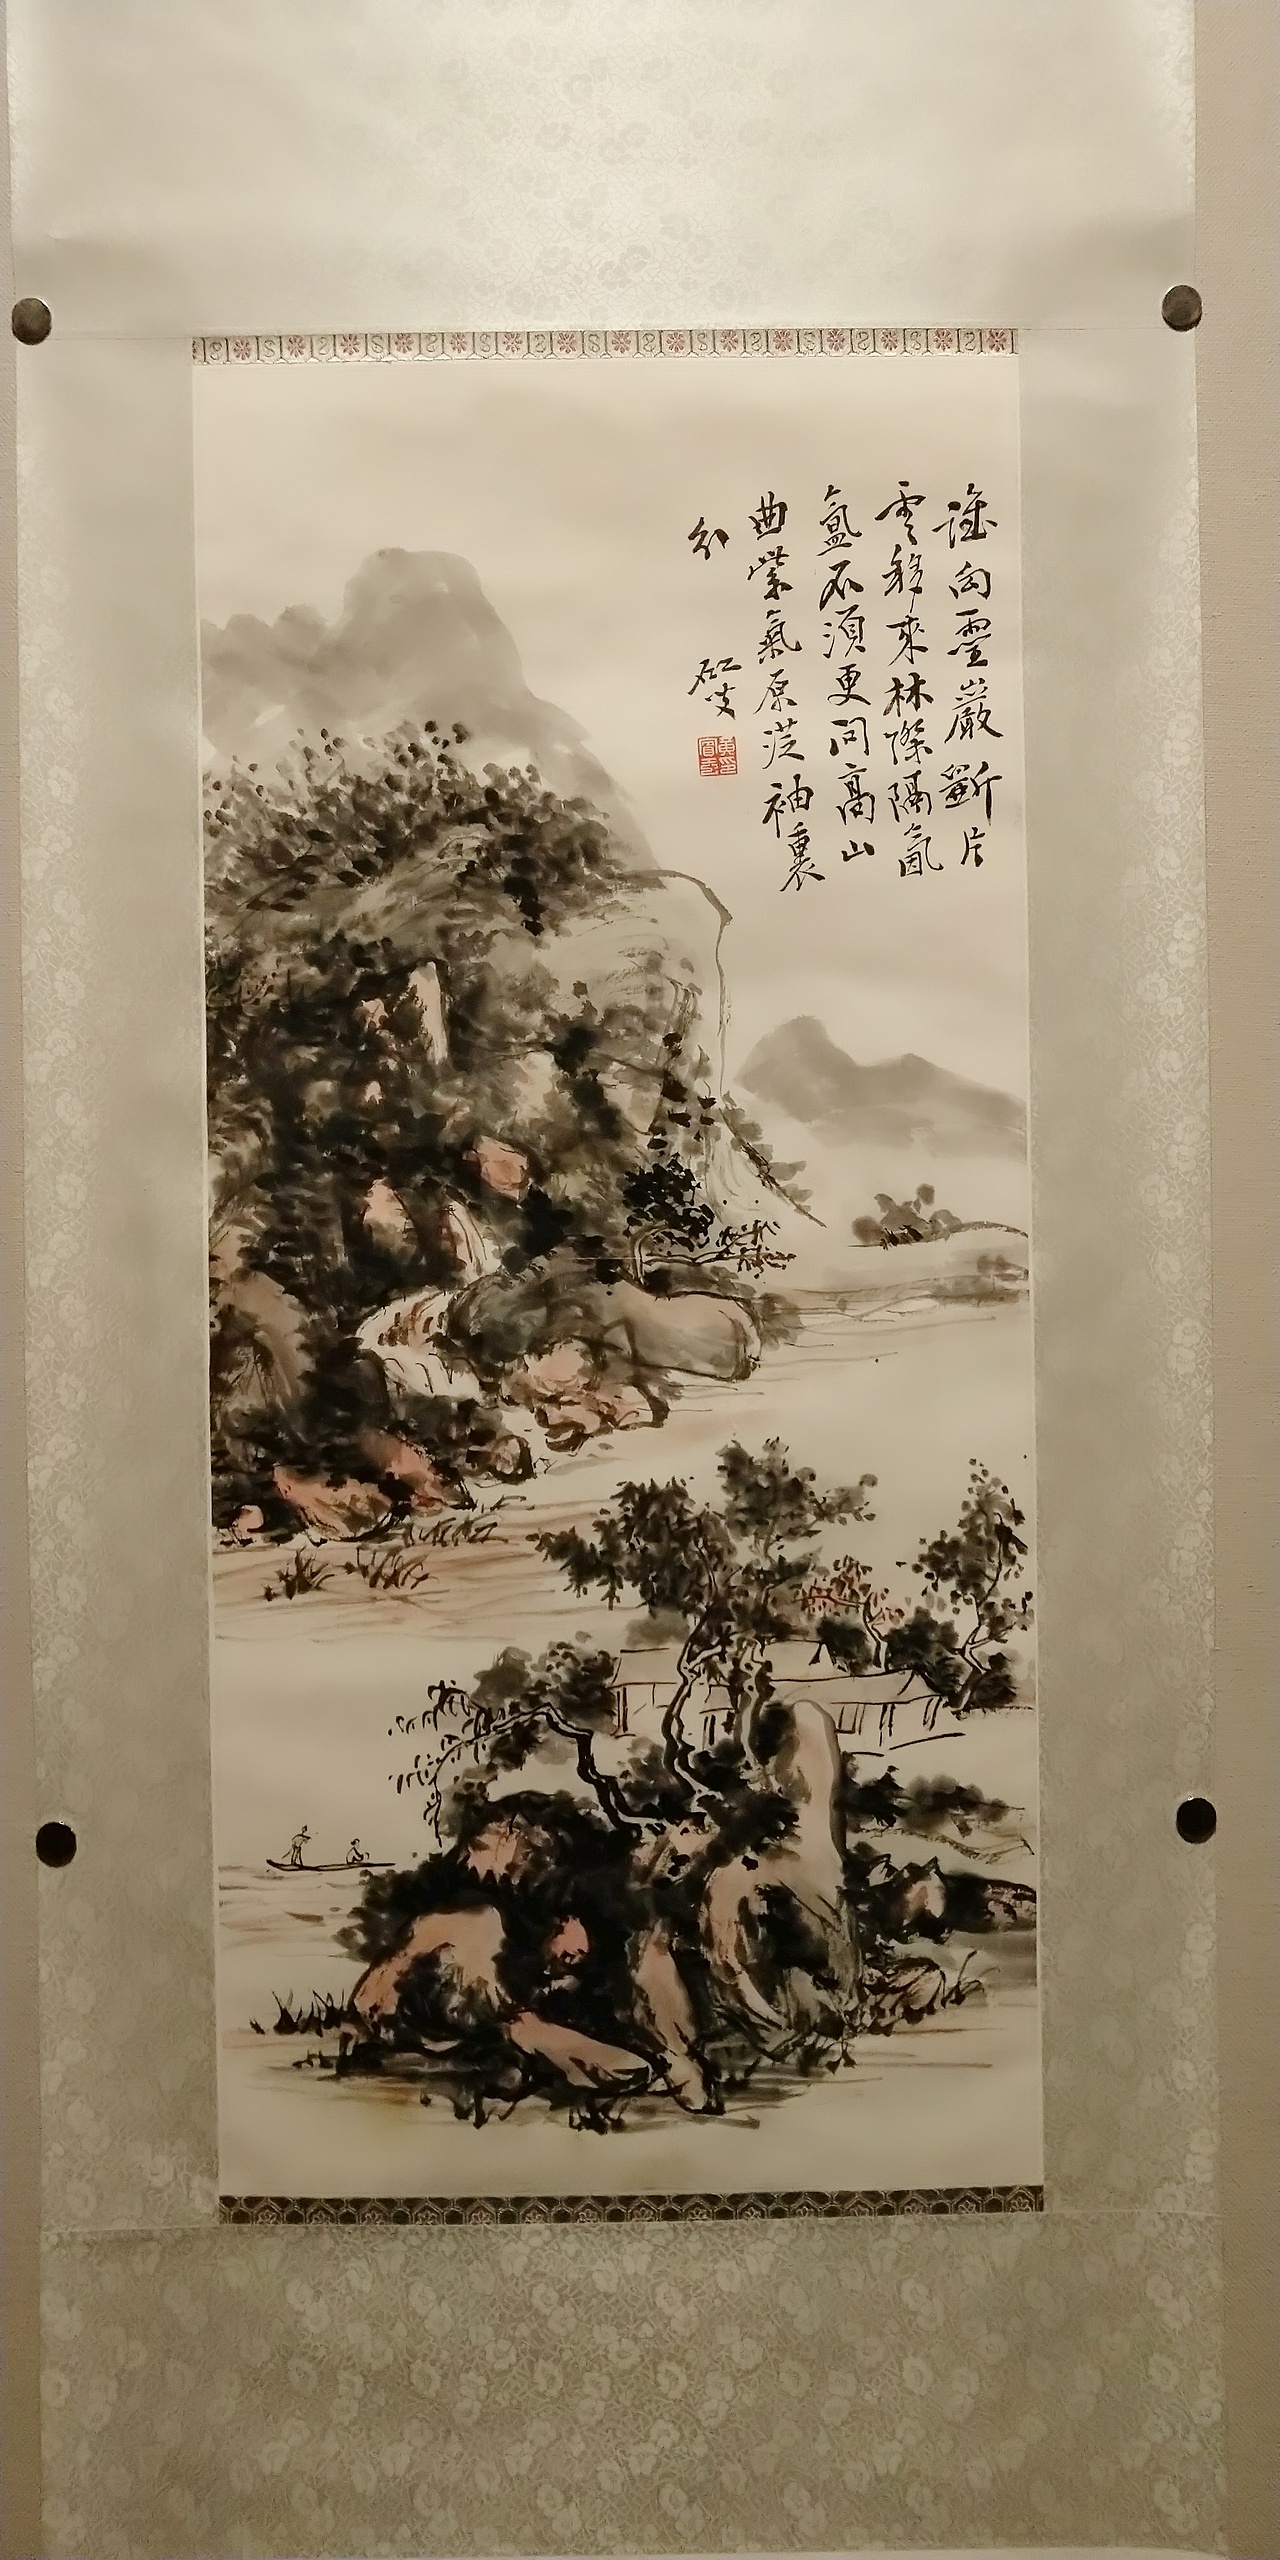 誰向靈巖斲片
雲移來林際隔氤
氳不須更問高山
曲紫氣原從袖裏
分
虹叟
黃賓虹